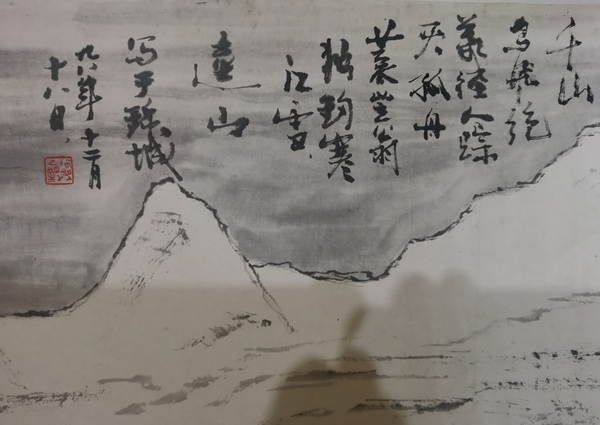 千山
鸟飛絕
萬徑人蹤
灭孤舟
蓑笠翁
独钓寒
江雪
遠山
写于珠城
九八年十二月
十八日